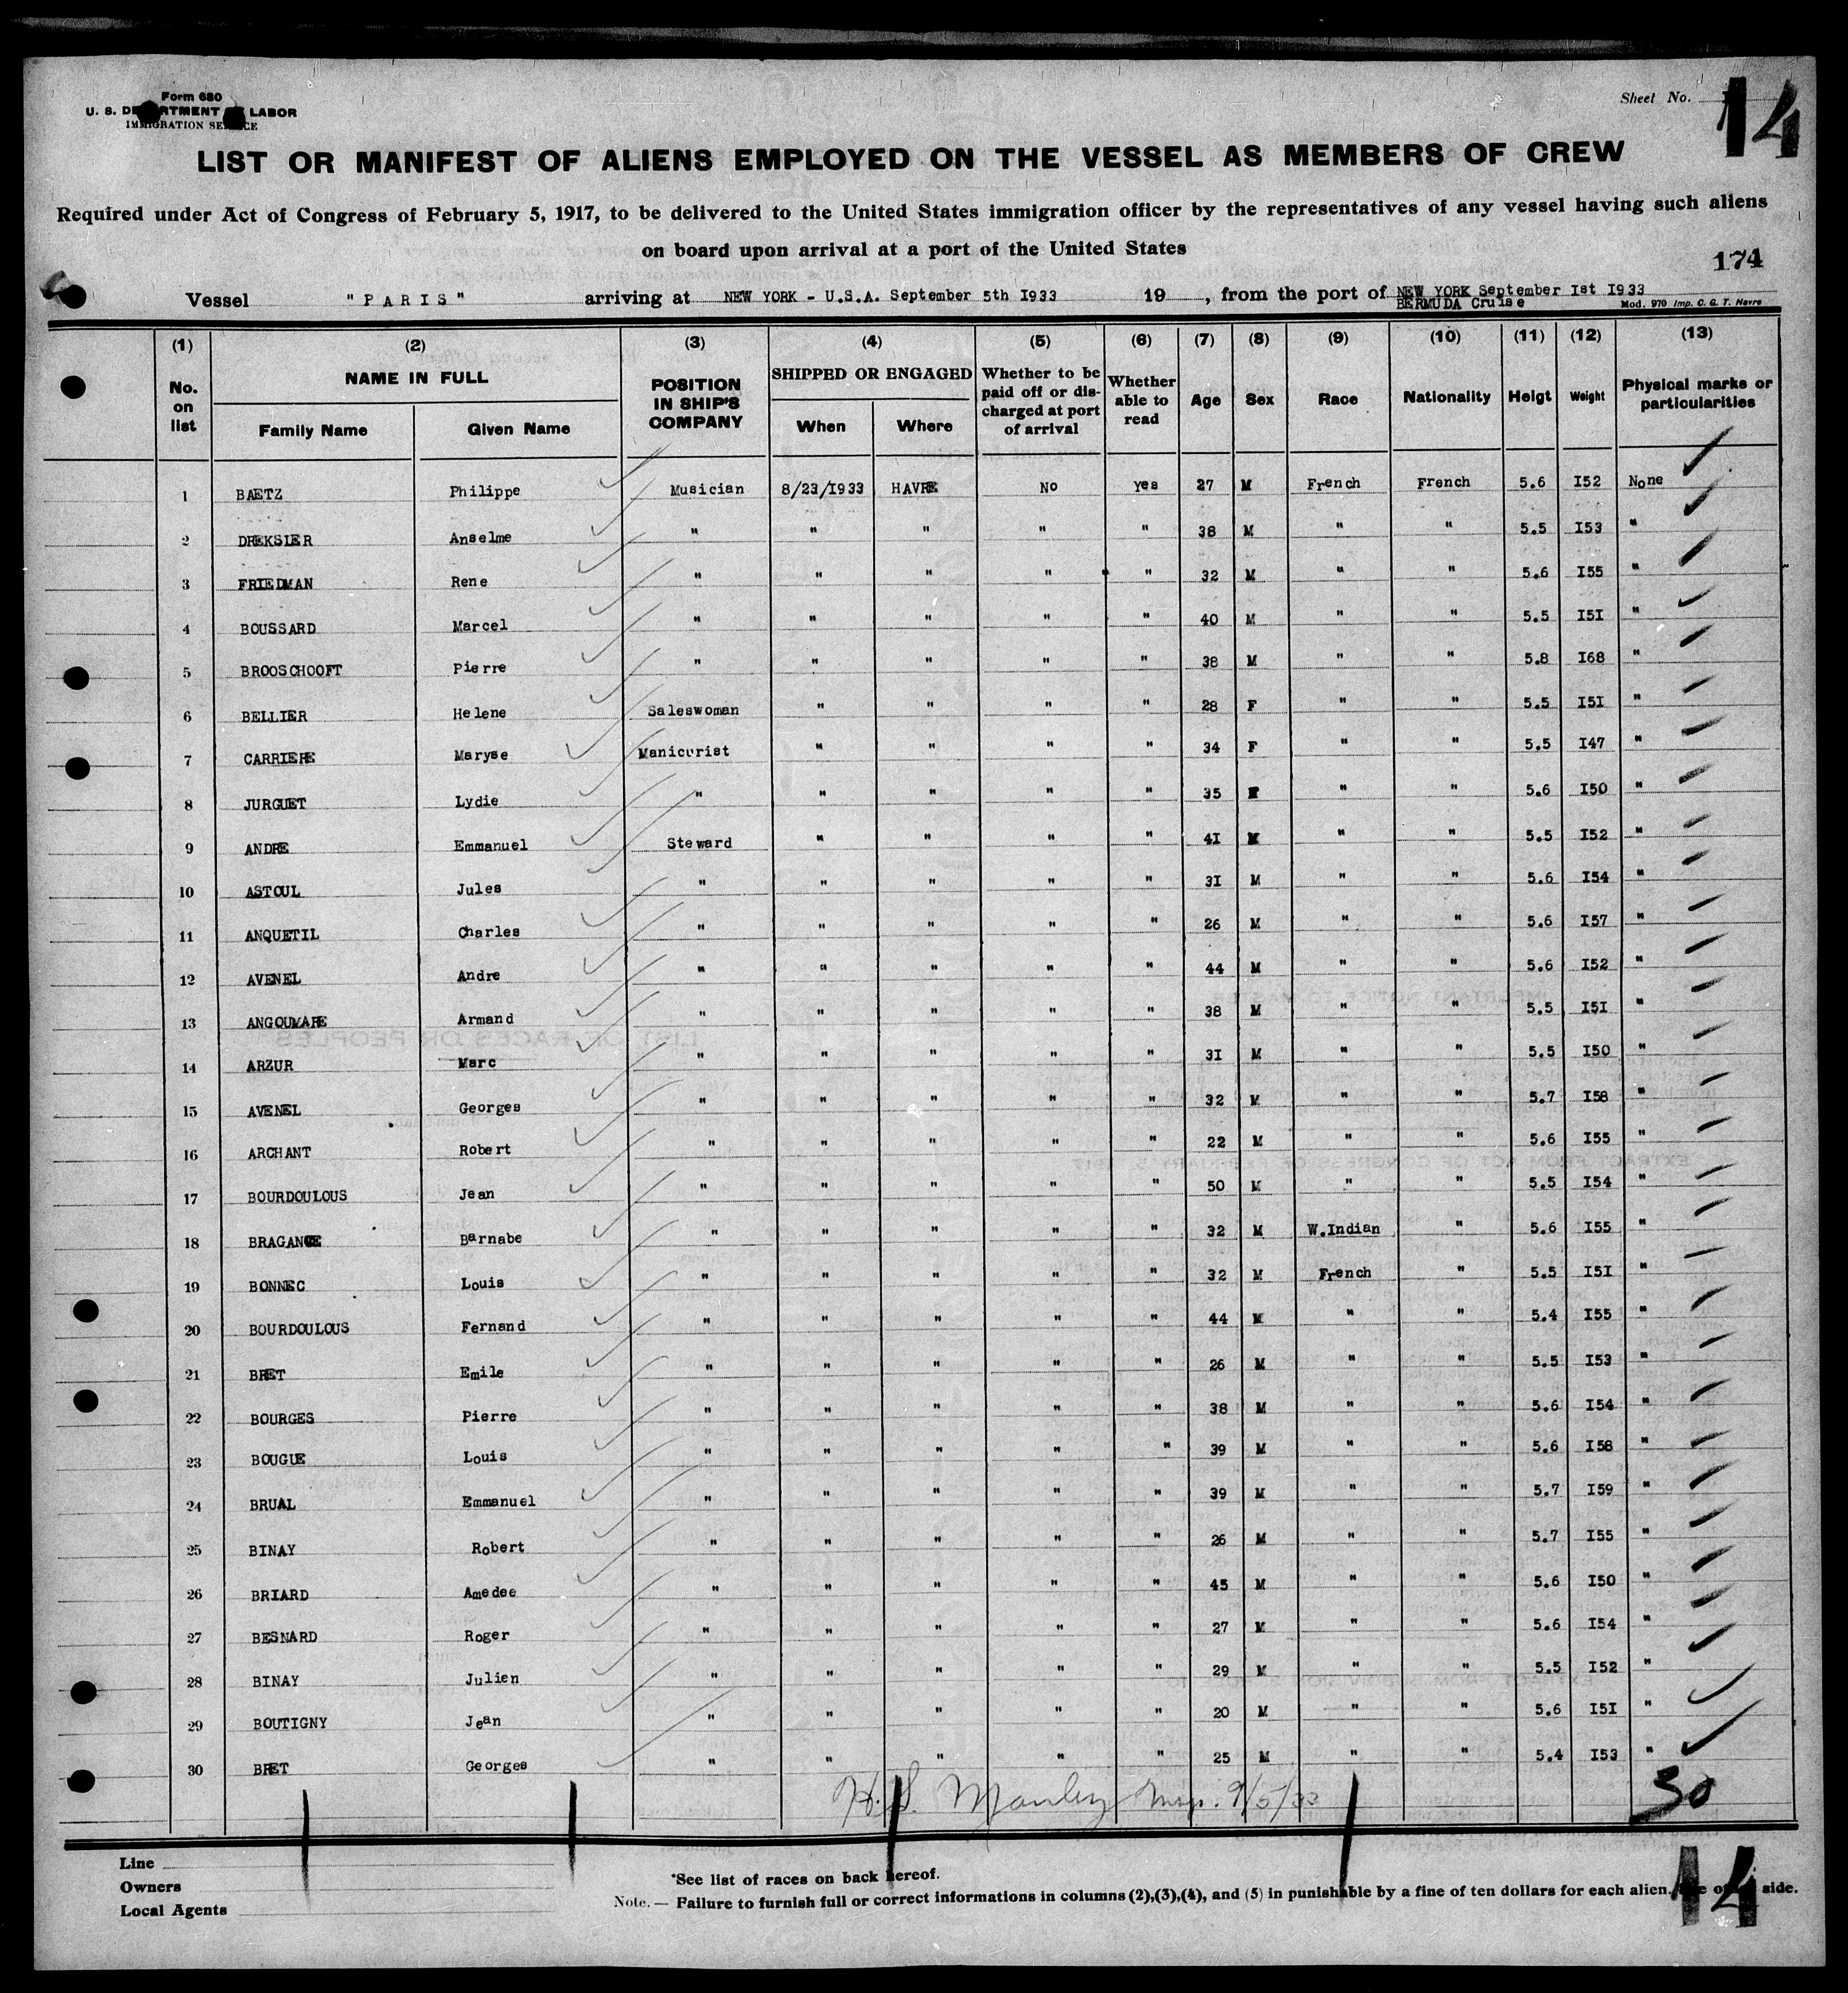 Form 680
U. S. DEPARTMENT OF LABOR
IMMIGRATION SERVICE
Sheet No.
14
LIST OR MANIFEST OF ALIENS EMPLOYED ON THE VESSEL AS MEMBERS OF CREW
Required under Act of Congress of February 5, 1917, to be delivered to the United States immigration officer by the representatives of any vessel having such aliens
on board upon arrival at a port of the United States
174
Vessel "PARIS" arriving at NEW YORK - U.S.A. September 5th I933 19 , from the port of NEW YORK September Ist I933
BERMUDA Cruise Mod. 970 Imp. C. G. T. Havre
(1) (2) (3) (4) (5) (6) (7) (8) (9) (10) (11) (12) (13)
No. on list NAME IN FULL Family Name Given Name POSITION IN SHIP'S COMPANY SHIPPED OR ENGAGED When Where Whether to be paid off or discharged at port of arrival Whether able to read Age Sex Race Nationality Heigt Weight Physical marks or particularities
1 BAETZ Philippe Musician 8/23/I933 HAVRE No yes 27 M French French 5.6 I52 None
2 DREKSLER Anselme " " " " " 38 M " " 5.5 I53 "
3 FRIEDMAN Rene " " " " " 32 M " " 5.6 I55 "
4 BOUSSARD Marcel " " " " " 40 M " " 5.5 I5I "
5 BROOSCHOOFT Pierre " " " " " 38 M " " 5.8 I68 "
6 BELLIER Helene Saleswoman " " " " 28 F " " 5.5 I5I "
7 CARRIERE Maryse Manicurist " " " " 34 F " " 5.5 I47 "
8 JURGUET Lydie " " " " " 35 F " " 5.6 I50 "
9 ANDRE Emmanuel Steward " " " " 4I M " " 5.5 I52 "
10 ASTOUL Jules " " " " " 3I M " " 5.6 I54 "
11 ANQUETIL Charles " " " " " 26 M " " 5.6 I57 "
12 AVENEL Andre " " " " " 44 M " " 5.6 I52 "
13 ANGOUMARE Armand " " " " " 38 M " " 5.5 I5I "
14 ARZUR Marc " " " " " 3I M " " 5.5 I50 "
15 AVENEL Georges " " " " " 32 M " " 5.7 I58 "
16 ARCHANT Robert " " " " " 22 M " " 5.6 I55 "
17 BOURDOULOUS Jean " " " " " 50 M " " 5.5 I54 "
18 BRAGANCE Barnabe " " " " " 32 M W.Indian " 5.6 I55 "
19 BONNEC Louis " " " " " 32 M French " 5.5 I5I "
20 BOURDOULOUS Fernand " " " " " 44 M " " 5.4 I55 "
21 BRET Emile " " " " " 26 M " " 5.5 I53 "
22 BOURGES Pierre " " " " " 38 M " " 5.6 I54 "
23 BOUGUE Louis " " " " " 39 M " " 5.6 I58 "
24 BRUAL Emmanuel " " " " " 39 M " " 5.7 I59 "
25 BINAY Robert " " " " " 26 M " " 5.7 I55 "
26 BRIARD Amedee " " " " " 45 M " " 5.6 I50 "
27 BESNARD Roger " " " " " 27 M " " 5.6 I54 "
28 BINAY Julien " " " " " 29 M " " 5.5 I52 "
29 BOUTIGNY Jean " " " " " 20 M " " 5.6 I5I "
30 BRET Georges " " " " " 25 M " " 5.4 I53 "
H. S. Manley Insp. 9/5/33
30
Line
Owners
Local Agents
*See list of races on back hereof.
Note. — Failure to furnish full or correct informations in columns (2),(3),(4), and (5) in punishable by a fine of ten dollars for each alien. side.
14